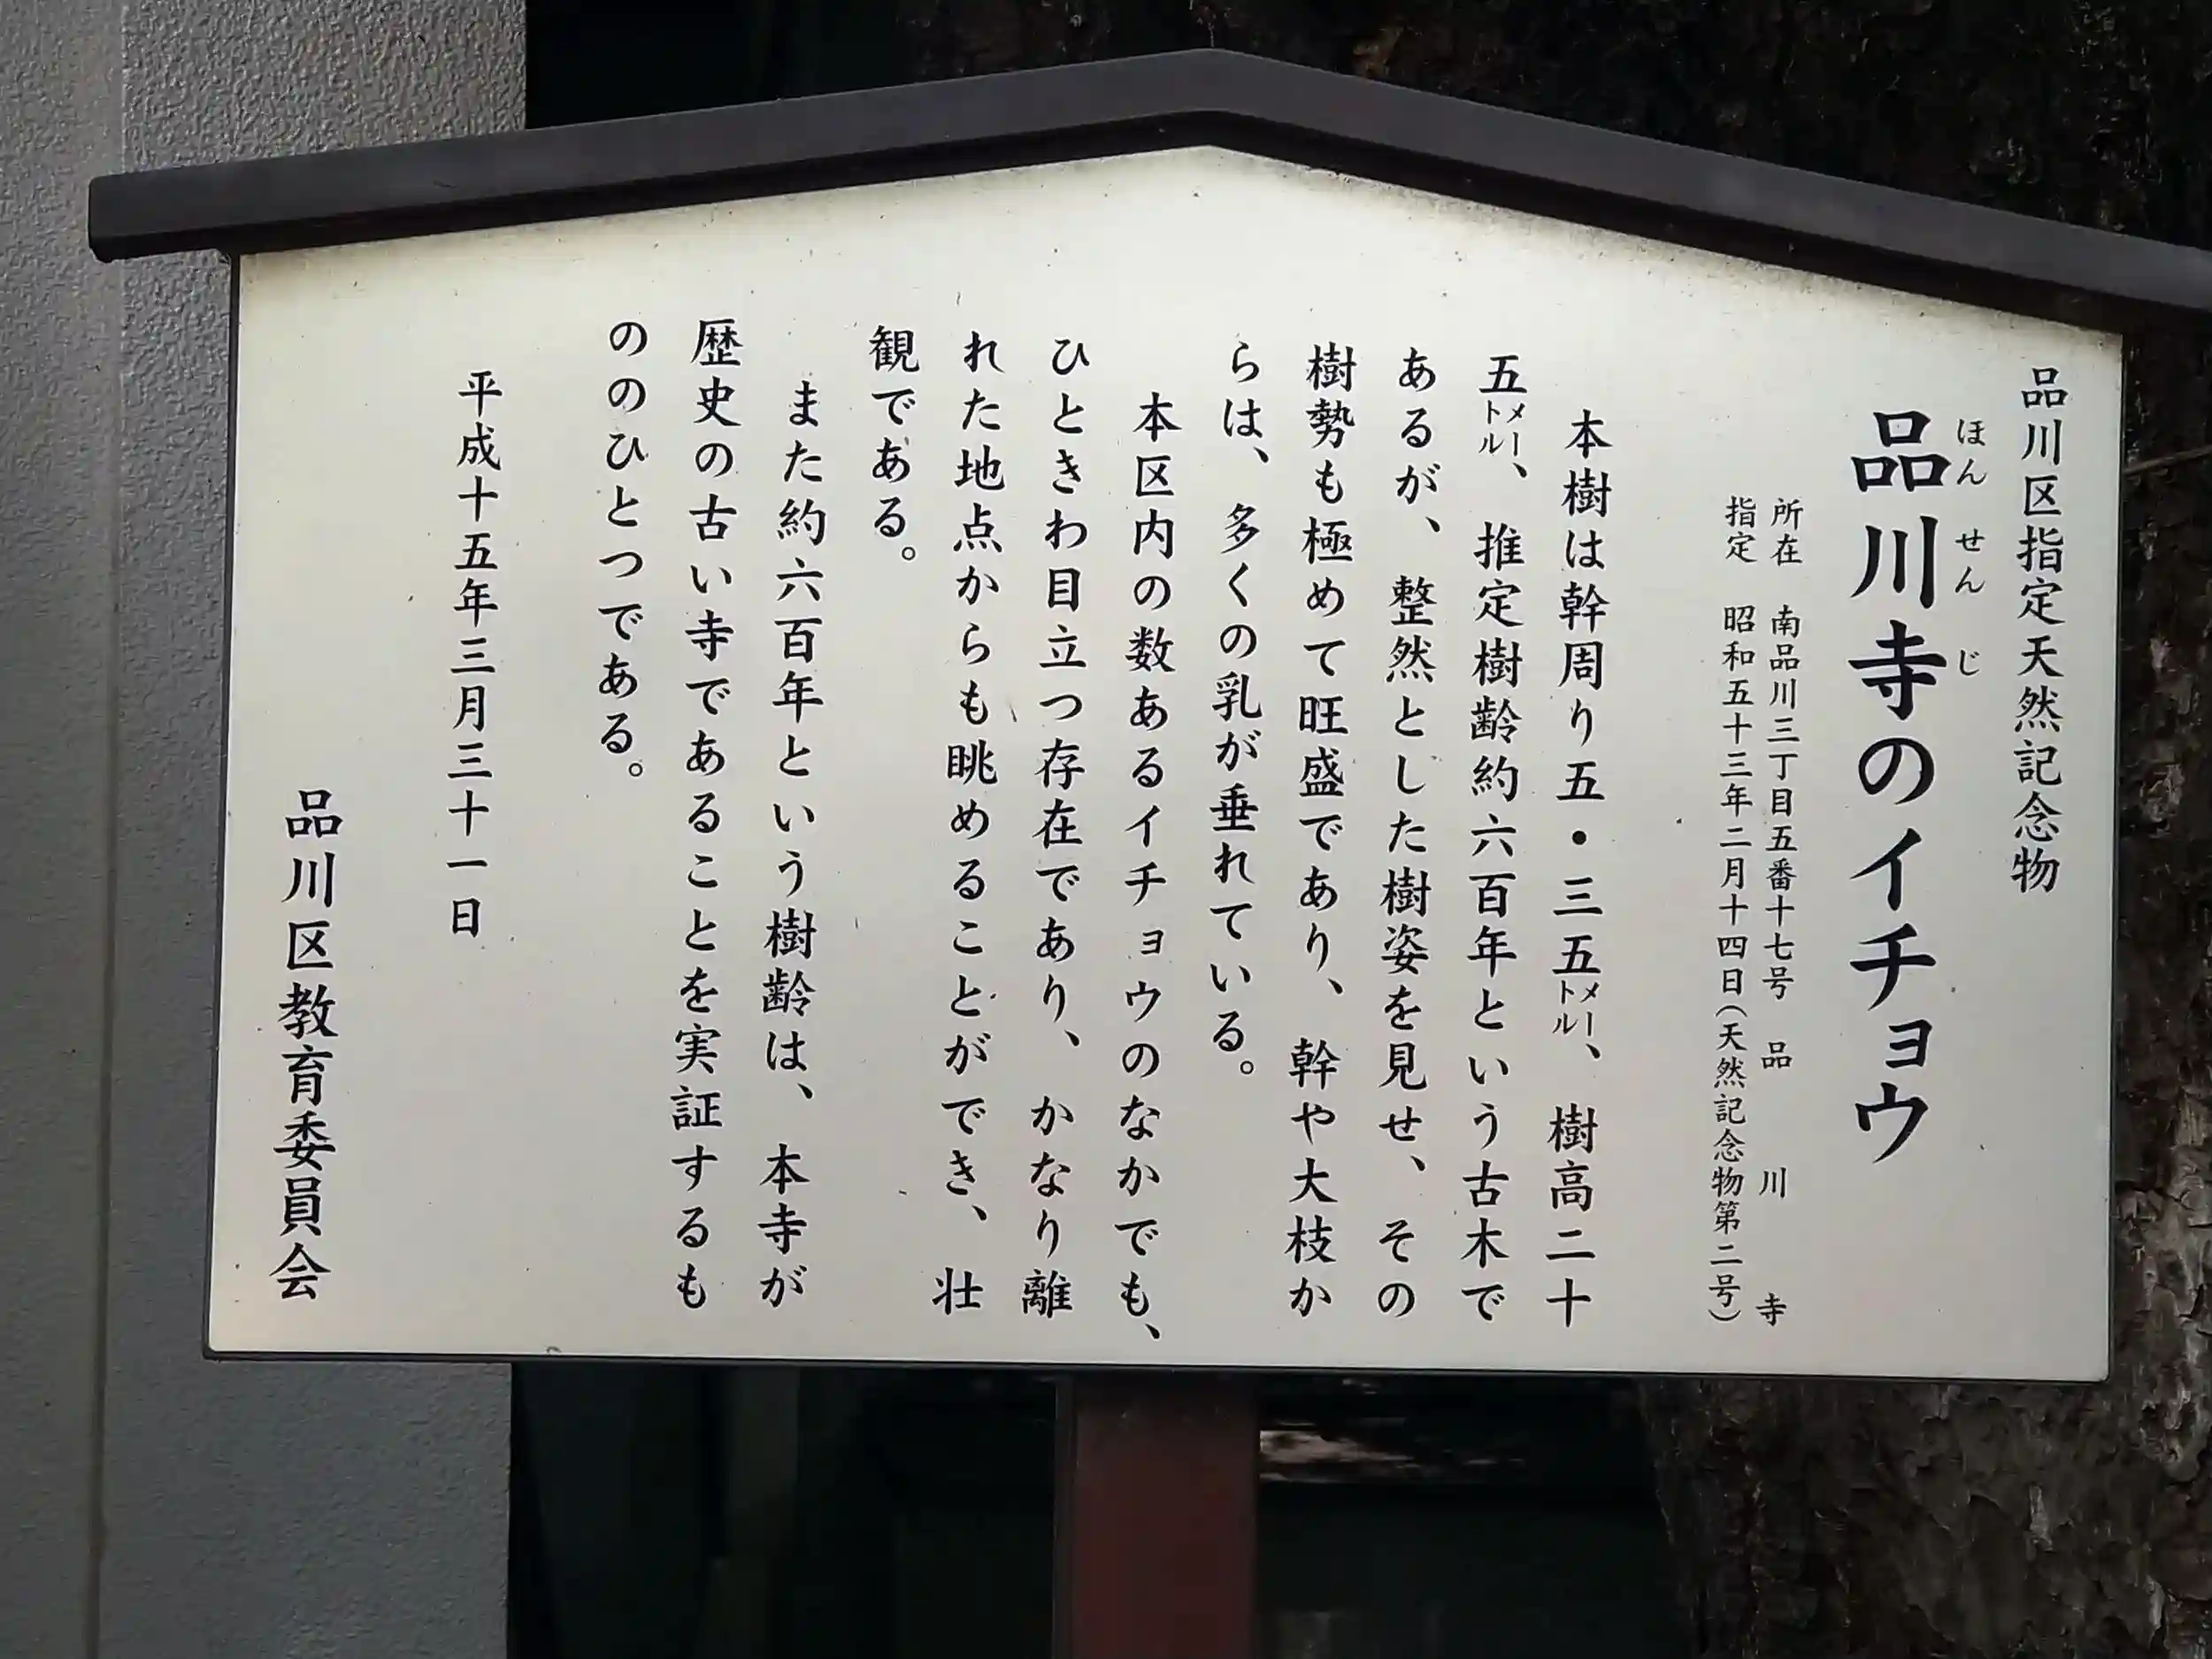 品川区指定天然記念物
品川寺のイチョウ
ほんせんじ
所在 南品川三丁目五番十七号 品川寺
指定 昭和五十三年二月十四日(天然記念物第二号)
本樹は幹周り五・三五メートル、樹高二十
五メートル、推定樹齢約六百年という古木で
あるが、整然とした樹姿を見せ、その
樹勢も極めて旺盛であり、幹や大枝か
らは、多くの乳が垂れている。
本区内の数あるイチョウのなかでも、
ひときわ目立つ存在であり、かなり離
れた地点からも眺めることができ、壮
観である。
また約六百年という樹齢は、本寺が
歴史の古い寺であることを実証するも
ののひとつである。
平成十五年三月三十一日
品川区教育委員会